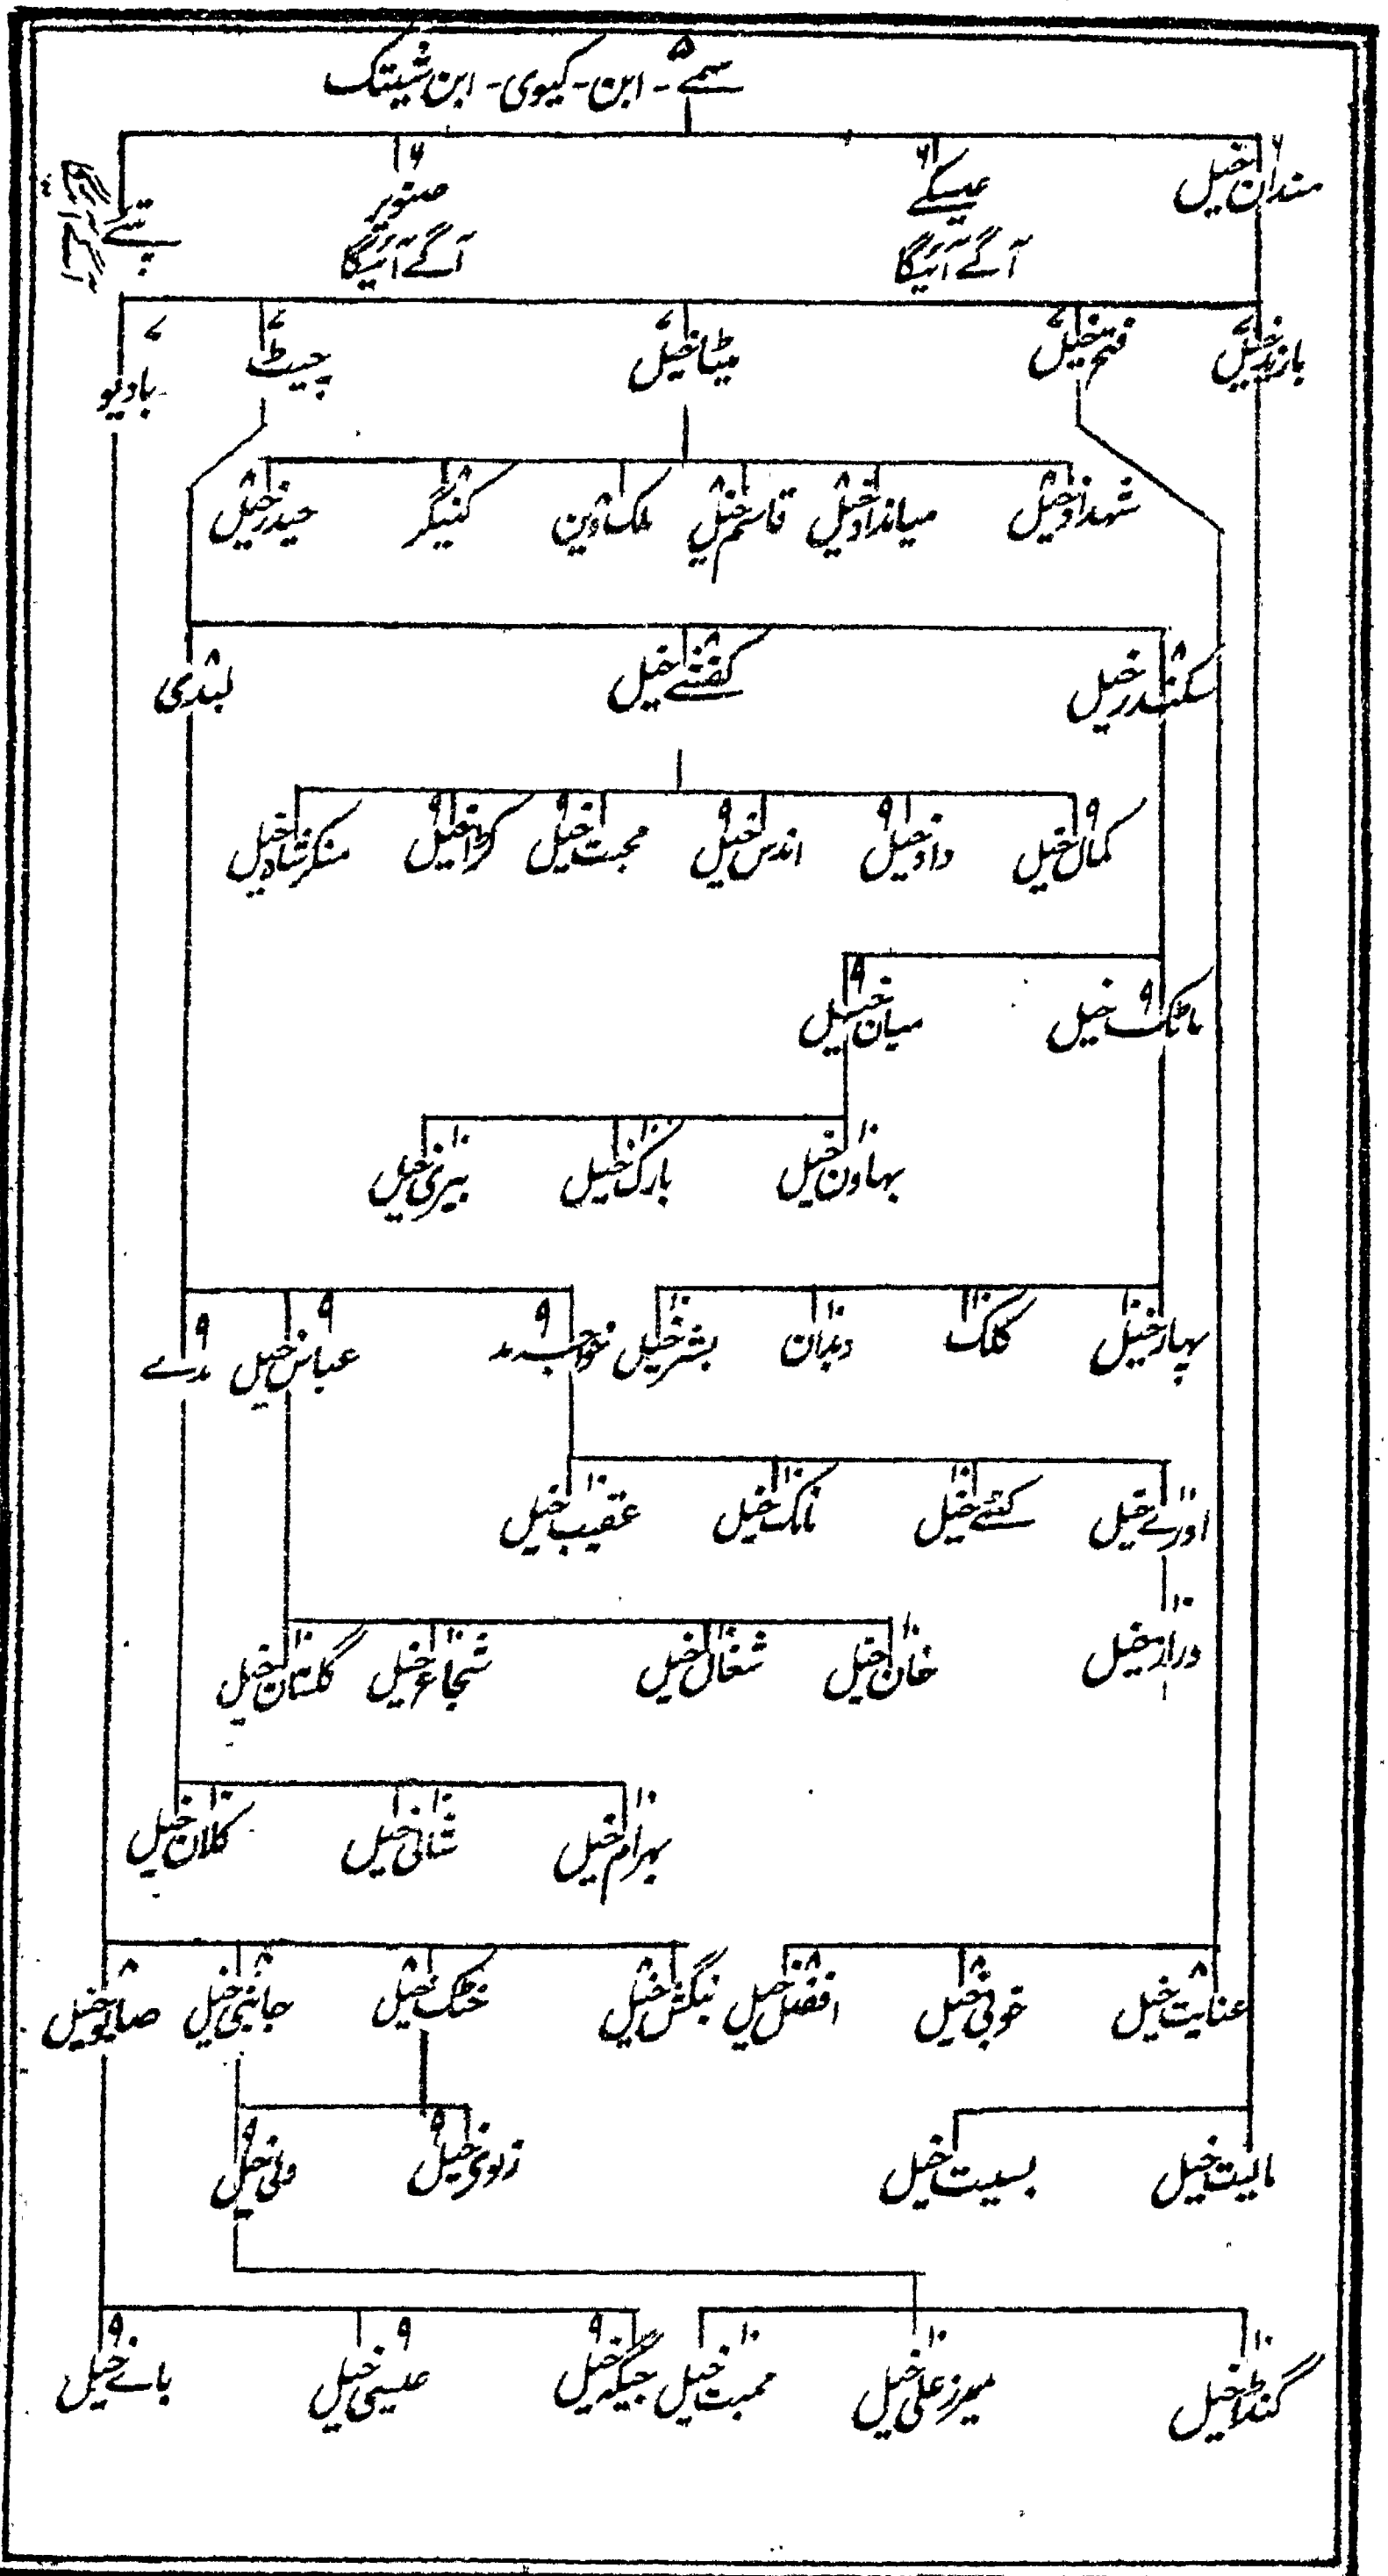 سمے ۵ - ابن - کیوی - ابن شیتک
مندان خیل ۶ عیسکے ۶ صنوبر ۶ پتے
آگے آئیگا آگے آئیگا
بازید خیل ۷ فتح خیل ۷ میٹا خیل ۷ چیٹ ۷ بادیو ۷
شہداد خیل ۸ میانداد خیل ۸ قاسم خیل ۸ ملک دین ۸ کنیگر ۸ حیدر خیل ۸
سکندر خیل ۸ کفشے خیل ۸ لبدی ۸
کمال خیل ۹ داود خیل ۹ اندس خیل ۹ محبت خیل ۹ کڑا خیل ۹ منکر شاہ خیل
ماٹک خیل ۹ میان خیل ۹
بہاون خیل ۱۰ بارک خیل ۱۰ بیری خیل ۱۰
پہاڑ خیل ۱۰ کلک ۱۰ دیدان ۱۰ بشر خیل ۱۰ خواجہ مد ۹ عباس خیل ۹ مدے ۹
اوزے خیل ۱۰ کٹے خیل ۱۰ نانک خیل ۱۰ عقیب خیل ۱۰
دراز خیل ۱۰ خان خیل ۱۰ شغال خیل ۱۰ شجاع خیل ۱۰ گلستان خیل ۱۰
بہرام خیل ۱۰ شانی خیل ۱۰ کلان خیل ۱۰
عنایت خیل ۸ خوبی خیل ۸ افضل خیل ۸ بنگش خیل ۸ خٹک خیل ۸ جانبی خیل ۸ صابو خیل ۸
مالیت خیل بسیت خیل زلوزی خیل ۹ ولی خیل ۹
گنڈا خیل ۱۰ میرز علی خیل ۱۰ ممبت خیل ۱۰ جیگہ خیل ۹ عیسی خیل ۹ بائے خیل ۹